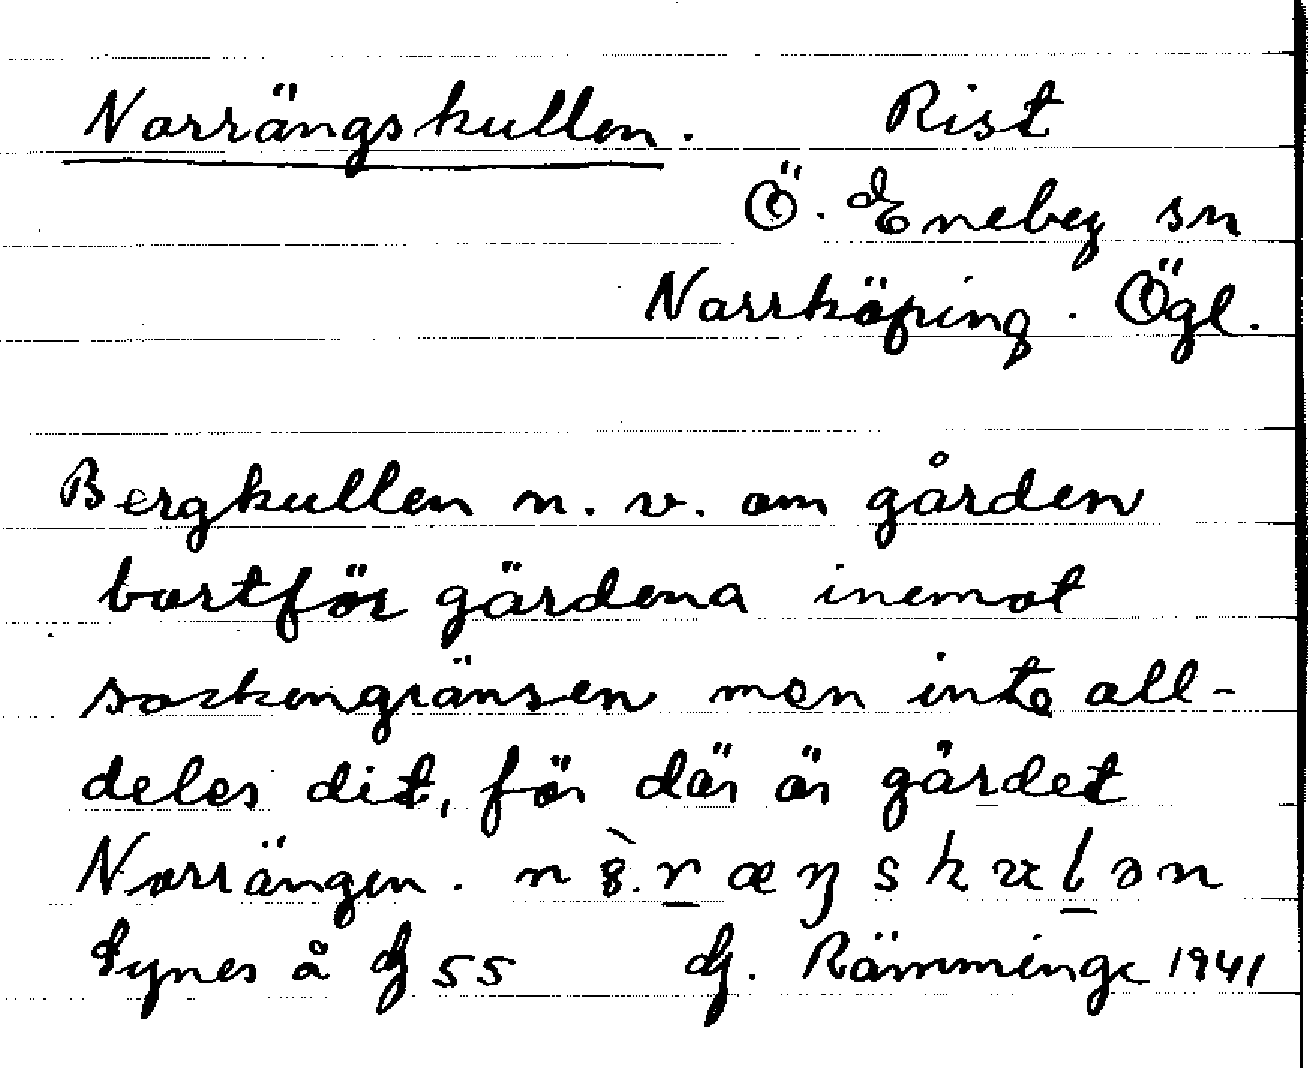 Norrängskullen. Rist
Ö. Eneby sn
Norrköping. Ögl.
Bergkullen n. v. om gården
bortför gärdena inemot
sockengränsen men inte all-
deles dit, för där är gärdet
Norrängen.
Synes å G 55 G. Rämminge 1941